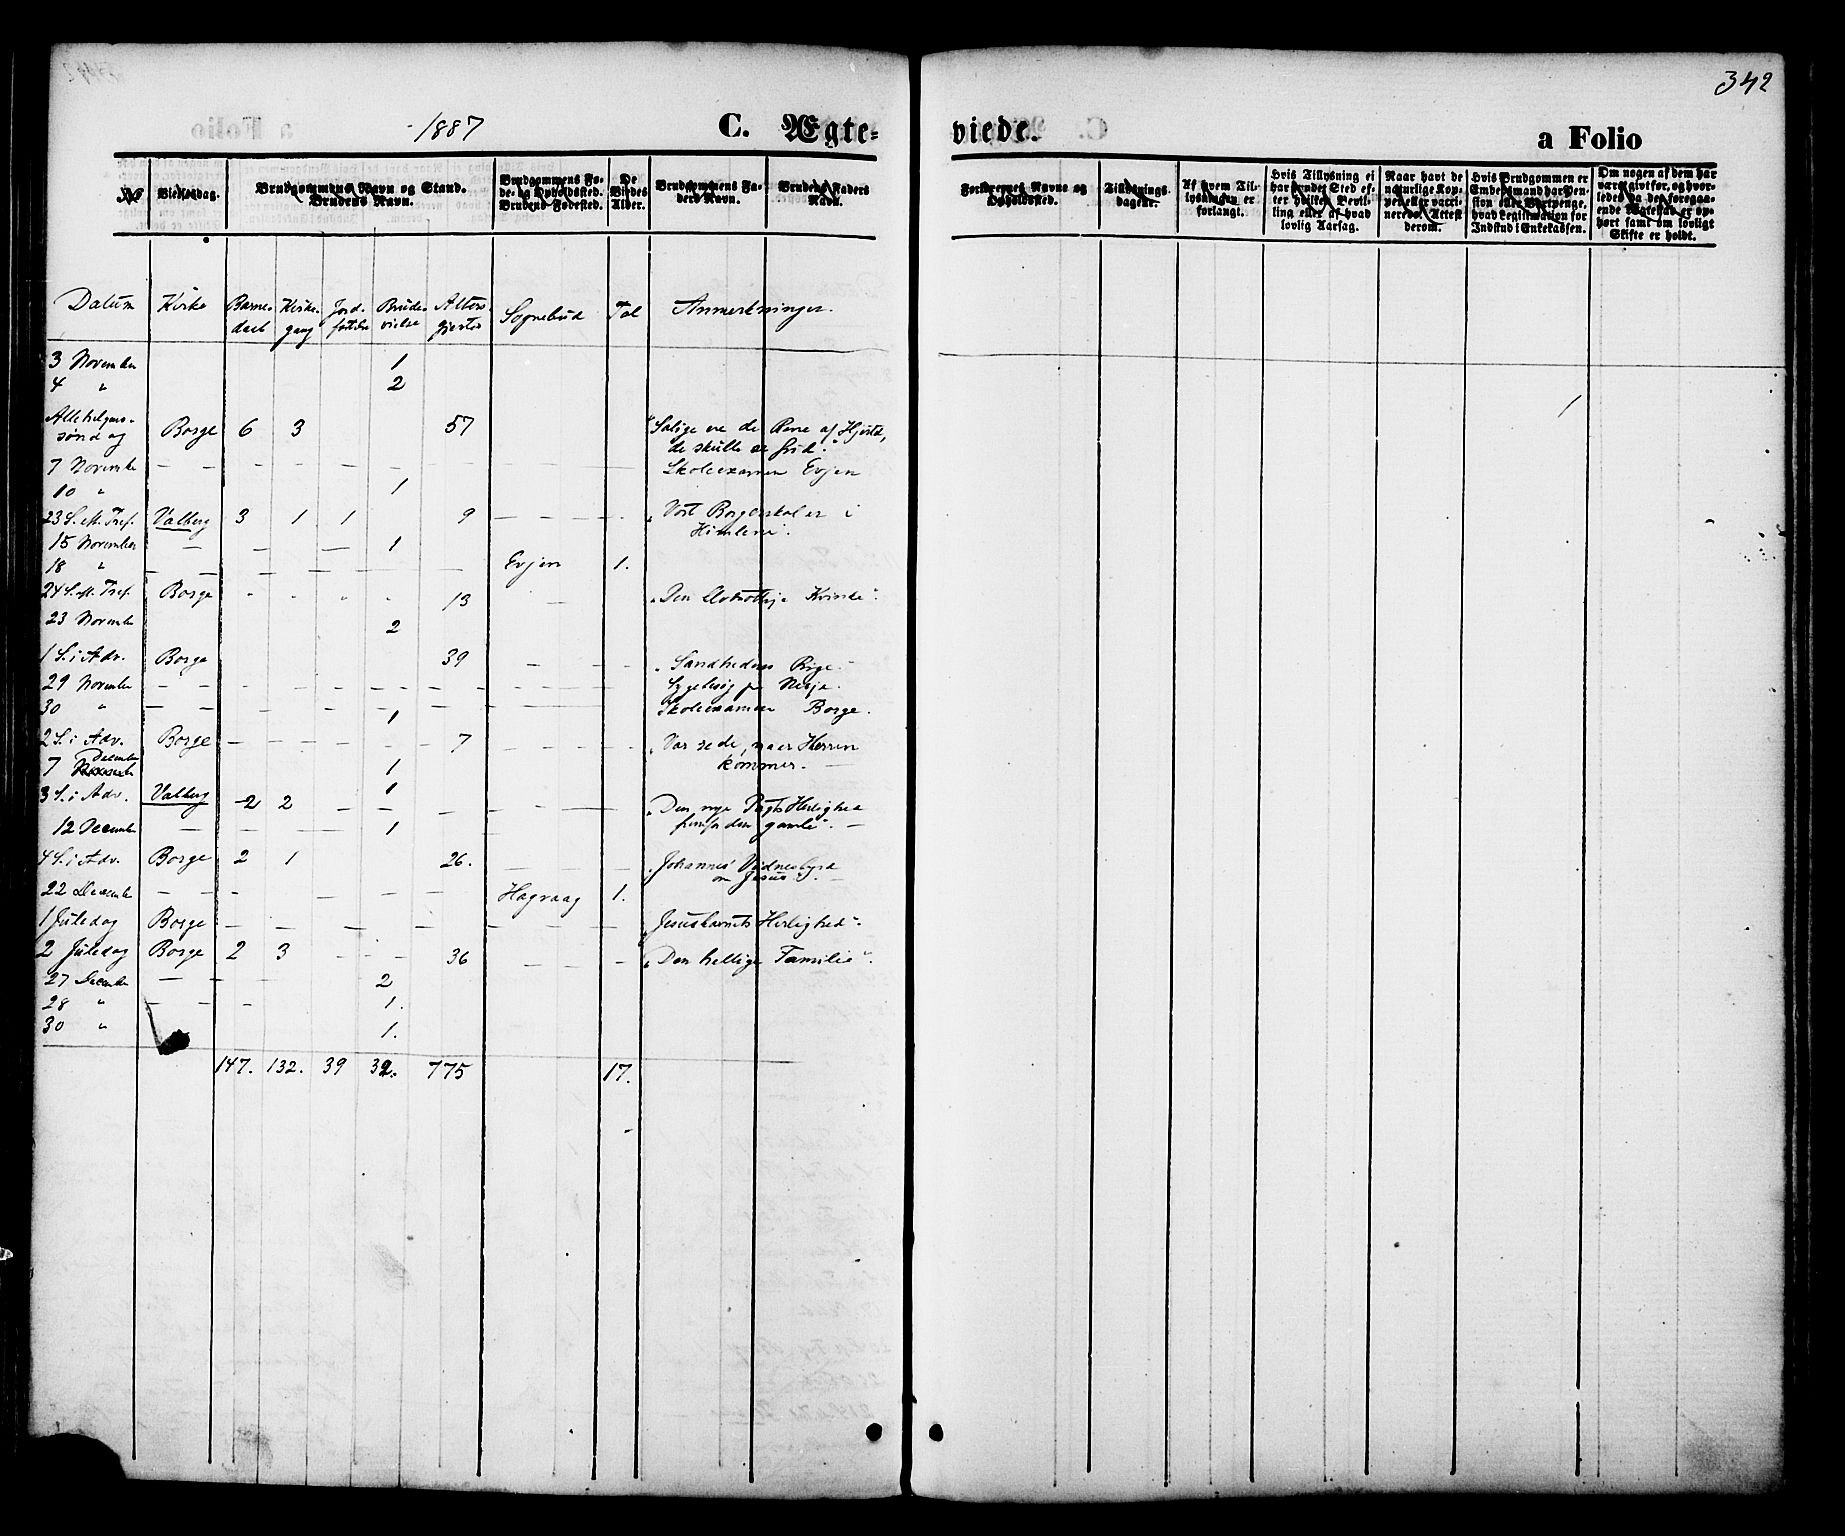 342
1887 C. Ægte- viede. a Folio
№ Vielsesdag. Brudgommens Navn og Stand. Brudens Navn. Brudgommens Fø- de- og Opholdssted. Brudens Fødested. De Viedes Alder. Brudgommens Fa- ders Navn. Brudens Faders Navn.
Forlovernes Navne og Opholdssted. Tillysnings- dagene. Af hvem Til- lysningen er forlangt. Hvis Tillysning ei har fundet Sted ef- ter hvilken Bevil- ling eller af hvad lovlig Aarsag. Naar havt de naturlige Kop- per eller vacci- nerede. Attest derom. Hvis Brudgommen er Embedsmand har Pen- sion eller Vartpenge, hvad Legitimation for Indskud i Enkekassen. Om nogen af dem har været givt før, og hvor- ledes da det foregaa- ende Ægteskab er op- hørt samt om lovligt Skifte er holdt.
Datum Kirke Barne- daab Kirke- gang Jord- fæstelse Brude- vielse Alters- gjester Sognebud Tal Anmerkninger.
3 November 1
4 " 2
Allehelgens- søndag Borge 6 3 57 "Salige ere de Rene af Hjertet,
de skulle se Gud".
7 November — — Skoleexamen Evjen
10 " 1
23 S. e. Tref. Valberg 3 1 1 9 "Vort Borgerskab er i
Himlene".
15 November — 1
18 " — Evjen 1.
24 S. e. Tref. Borge 13 "Den blodsottige Kvinde".
23 November 2
1 S. i Adv. Borge 39 "Sandhedens Rige."
29 November — — Sygebesøg paa Nesje.
30 " — 1 Skoleexamen Borge.
2 S. i Adv. Borge — 7 "Vær rede, naar Herren
kommer.
7 December 1
3 S. i Adv. Valberg 2 2 — 1 — "Den nye Pagts Herlighed
fremfor den gamle".
12 December — 1
4 S. i Adv. Borge 2 1 26. "Johannes' Vidnesbyrd
om Jesus".
22 December — — Hagvaag 1.
1 Juledag Borge — "Jesusbarnets Herlighed".
2 Juledag Borge 2 3 — 36 "Den hellige Familie".
27 December — 2
28 " — 1.
30 " 1.
147. 132. 39 32. 775 17.